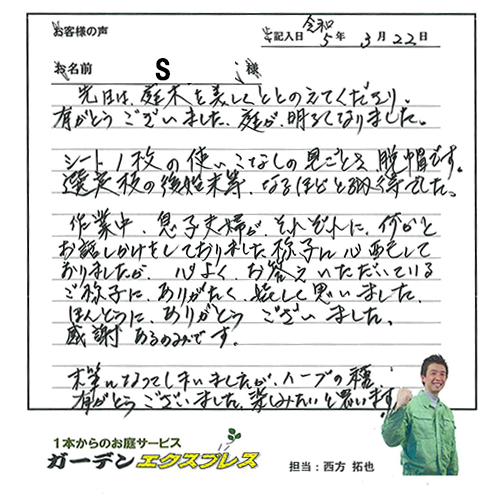 お客様の声
記入日 令和5年3月22日
お名前 S 様
先日は、庭木を美しくととのえてくださり、
有がとうございました、庭が、明るくなりました。
シート1枚の使いこなしの見ごとさ 脱帽です。
選定枝の後始末等、なるほどと納得でした。
作業中、息子夫婦が、それぞれに、何かと
お話しかけをしておりました様子に心配して
おりましたが、心よく、お答えいただいている
ご様子に、ありがたく、嬉しく思いました、
ほんとうに、ありがとう ございました。
感謝 あるのみです。
末筆になってしまいましたが、ハーブの種、
有がとうございました、楽しみたいと思います。
1本からのお庭サービス
ガーデンエクスプレス
担当：西方 拓也